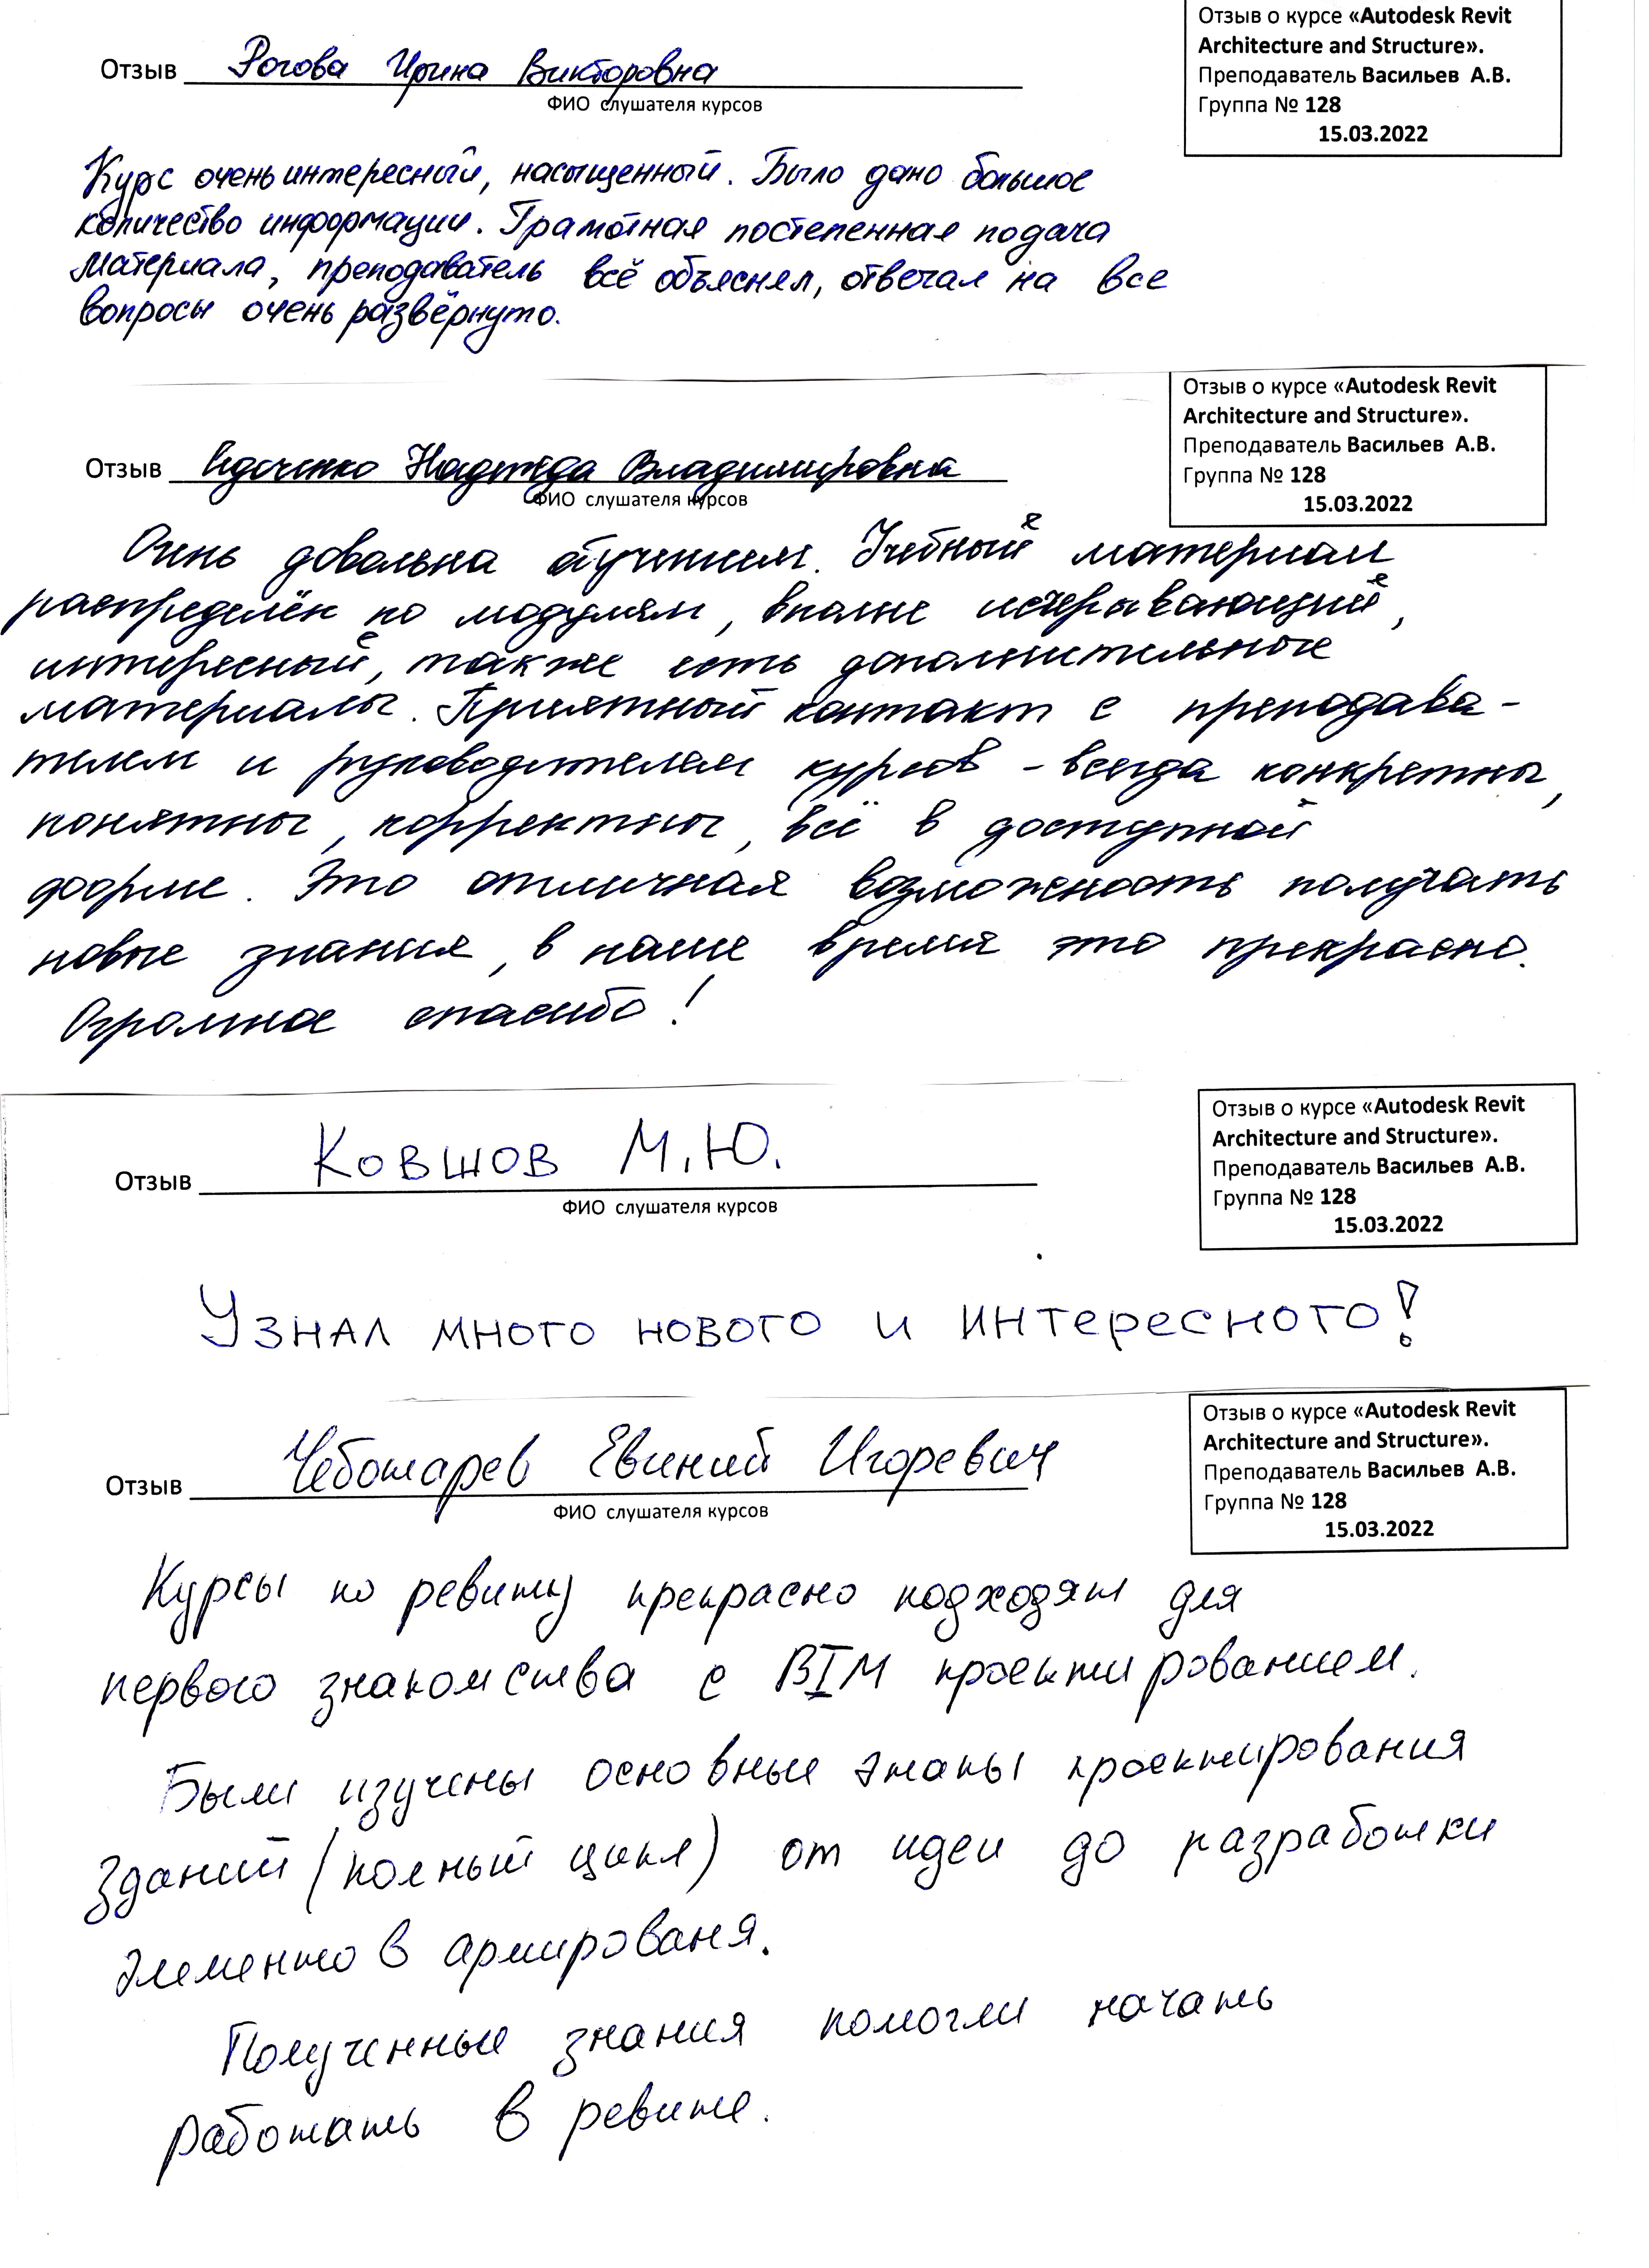 Отзыв о курсе «Autodesk Revit
Architecture and Structure».
Преподаватель Васильев А.В.
Группа № 128
15.03.2022
Отзыв Рогова Ирина Викторовна
ФИО слушателя курсов
Курс очень интересный, насыщенный. Было дано большое
количество информации. Грамотная постепенная подача
материала, преподаватель всё объяснял, отвечал на все
вопросы очень развёрнуто.
Отзыв о курсе «Autodesk Revit
Architecture and Structure».
Преподаватель Васильев А.В.
Группа № 128
15.03.2022
Отзыв Надежда Владимировна
ФИО слушателя курсов
Очень довольна обучением. Учебный материал
распределён по модулям, вполне исчерывающий,
интересный, также есть дополнительные
материалы. Приятный контакт с преподава-
телем и руководителем курсов - всегда конкретны,
понятны, корректны, всё в доступной
форме. Это отличная возможность получать
новые знания, в наше время это прекрасно.
Огромное спасибо!
Отзыв о курсе «Autodesk Revit
Architecture and Structure».
Преподаватель Васильев А.В.
Группа № 128
15.03.2022
Отзыв Ковшов М.Ю.
ФИО слушателя курсов
Узнал много нового и интересного!
Отзыв о курсе «Autodesk Revit
Architecture and Structure».
Преподаватель Васильев А.В.
Группа № 128
15.03.2022
Отзыв Чеботарев Евгений Игоревич
ФИО слушателя курсов
Курсы по ревиту прекрасно подходят для
первого знакомства с BIM проектированием.
Были изучены основные этапы проектирования
зданий (полный цикл) от идеи до разработки
элементов армированя.
Полученные знания помогли начать
работать в ревите.